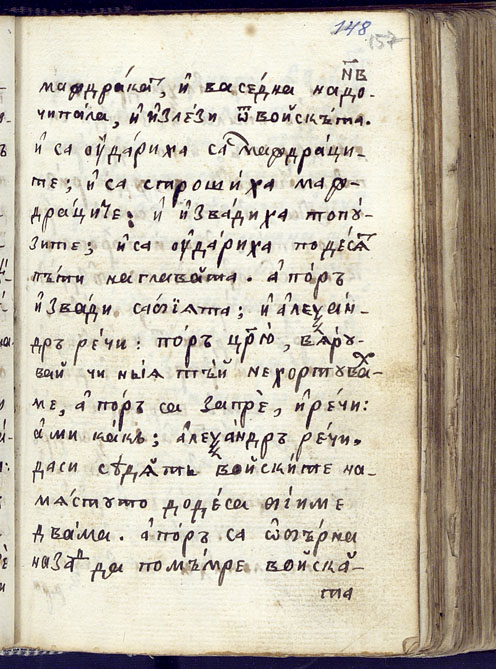 148
157
н҃в
маѳдрака, и васедна надо-
чипала, и излези ѿ войскъта.
и са ѹдариха са маѳдраци-
те; и са строшиха маѳ-
драциче: и извадиха топꙋ-
зите; и са ѹдариха подеся
пъти наглавата. а поръ
извади саѳїята; и алеѯан-
дръ речи: поръ црю, вярꙋ-
вай чи ныя тъй нехортꙋва-
ме, а поръ са запрѐ, и речи:
ами какъ; алеѯандръ речи.
даси сꙋдятъ войските на-
мястꙋто додеса ѳїиме
двама. а поръ са ѿвърна
назад да помъмре войска-
та